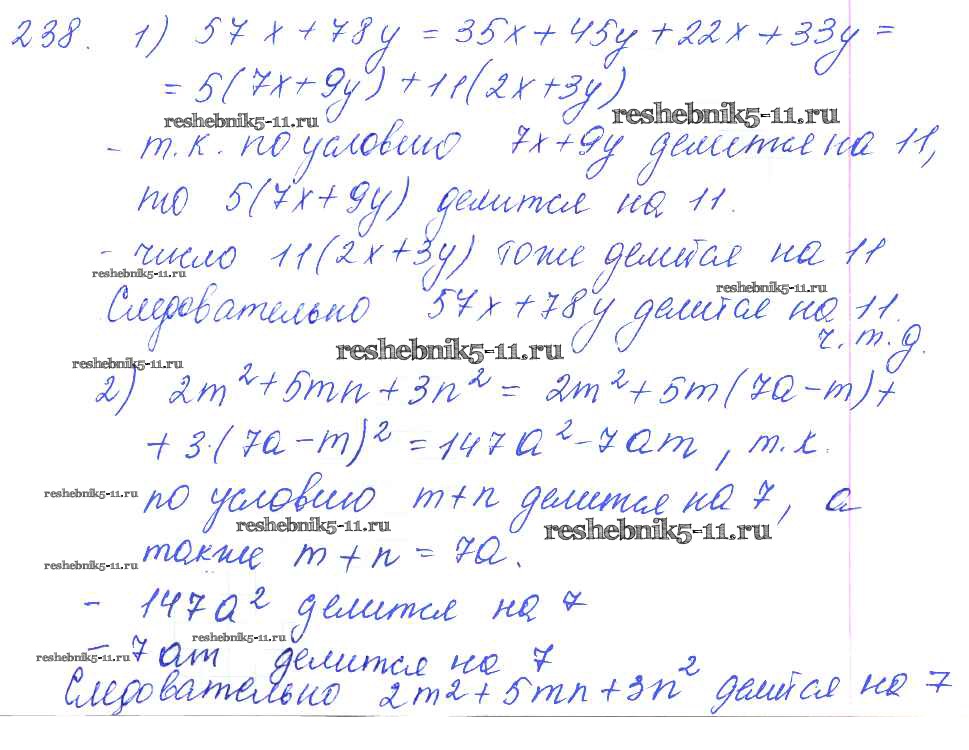 238. 1) 57x + 78y = 35x + 45y + 22x + 33y =
= 5(7x + 9y) + 11(2x + 3y)
reshebnik5-11.ru reshebnik5-11.ru
- т.к. по условию 7x + 9y делится на 11,
то 5(7x + 9y) делится на 11.
- число 11(2x + 3y) тоже делится на 11
reshebnik5-11.ru reshebnik5-11.ru
Следовательно 57x + 78y делится на 11.
ч.т.д.
reshebnik5-11.ru reshebnik5-11.ru
2) 2m² + 5mn + 3n² = 2m² + 5m(7a - m) +
+ 3·(7a - m)² = 147a² - 7am, т.к.
reshebnik5-11.ru по условию m + n делится на 7, а
reshebnik5-11.ru reshebnik5-11.ru
reshebnik5-11.ru также m + n = 7a.
- 147a² делится на 7
reshebnik5-11.ru
reshebnik5-11.ru - 7am делится на 7
Следовательно 2m² + 5mn + 3n² делится на 7